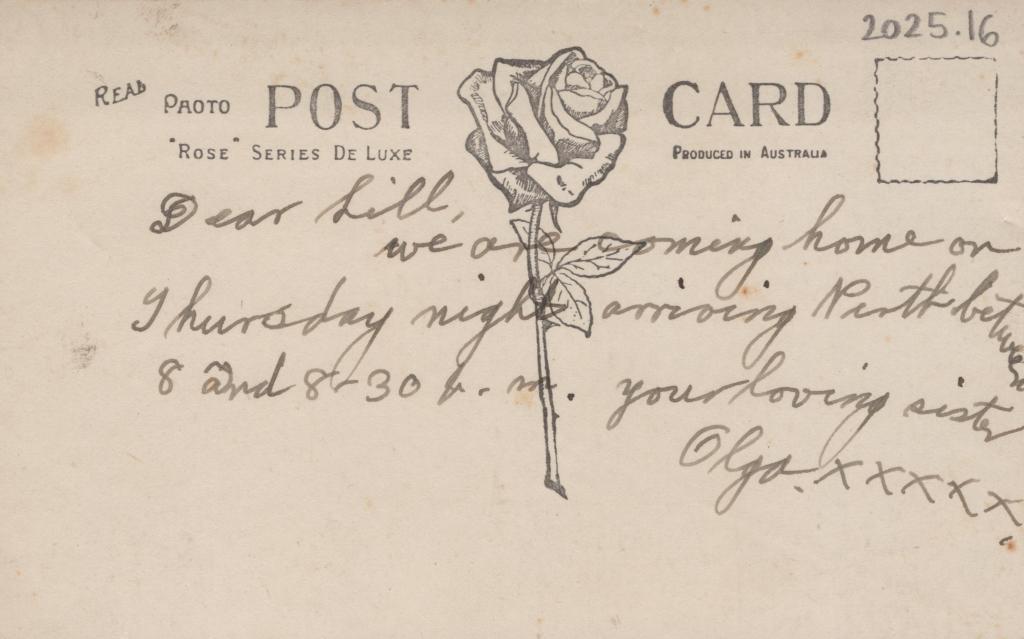 2025.16
READ PHOTO POST CARD
"ROSE" SERIES DE LUXE PRODUCED IN AUSTRALIA
Dear Lill,
we are coming home on
Thursday night arriving Perth between
8 and 8-30 p.m. your loving sister
Olga. xxxxx.